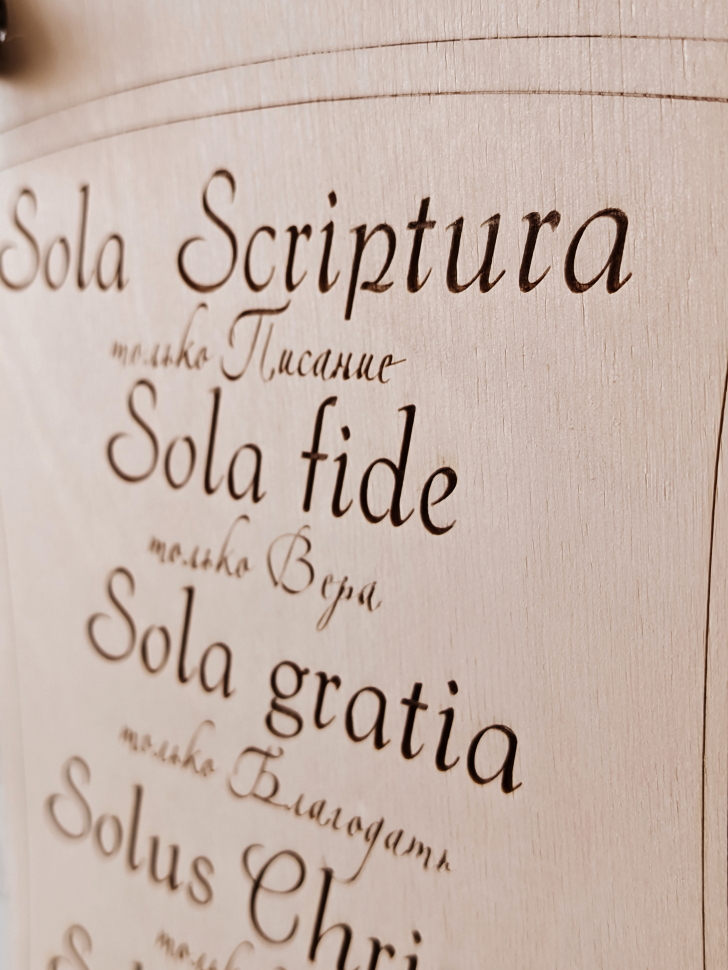 Sola Scriptura
только Писание
Sola fide
только Вера
Sola gratia
только Благодать
Solus Chri
только